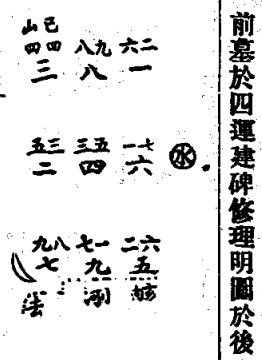 前墓於四運建碑修理明圖於後
山己
四四 八九 六二
三 八 一
五三 三五 一七
二 四 六 水
九八 七一 二六
七 九 五